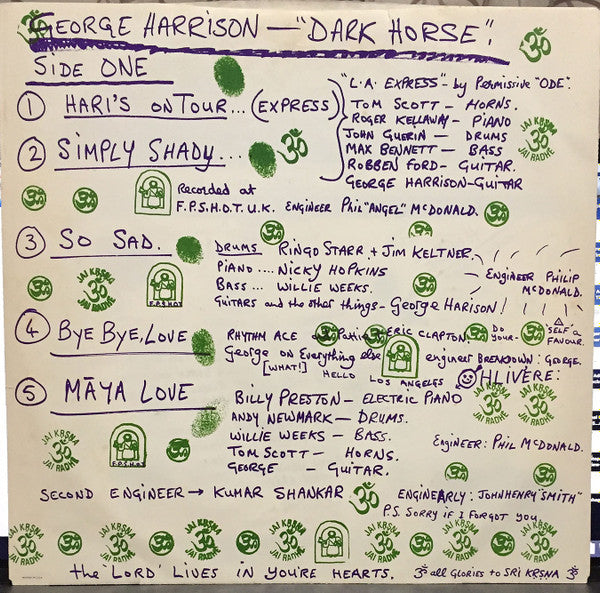 GEORGE HARRISON — "DARK HORSE".
SIDE ONE
① HARI'S ON TOUR... (EXPRESS)
"L.A. EXPRESS" - by Permissive "ODE".
TOM SCOTT — HORNS.
ROGER KELLAWAY - PIANO
JOHN GUERIN — DRUMS
MAX BENNETT — BASS
ROBBEN FORD - GUITAR.
GEORGE HARRISON - GUITAR
② SIMPLY SHADY...
ॐ
ॐ
JAI KRSNA
ॐ
JAI RADHE
Recorded at
F.P.S.H.O.T. U.K. ENGINEER PHIL "ANGEL" McDONALD.
③ SO SAD.
DRUMS RINGO STARR + JIM KELTNER.
PIANO .... NICKY HOPKINS
BASS... WILLIE WEEKS.
GUITARS and the other things - GEORGE HARISON!
ENGINEER PHILIP
McDONALD.
JAI KRSNA
ॐ
JAI RADHE
F.P.S.H.O.T.
④ BYE BYE, LOVE
RHYTHM ACE ERIC CLAPTON, DO YOUR- SELF A FAVOUR.
George on Everything else engineer BREAKDOWN: GEORGE.
[WHAT!] HELLO LOS ANGELES OHLIVERE:
⑤ MĀYA LOVE
BILLY PRESTON - ELECTRIC PIANO
ANDY NEWMARK — DRUMS.
WILLIE WEEKS — BASS.
TOM SCOTT — HORNS.
GEORGE — GUITAR.
ENGINEER: PHIL McDONALD.
JAI KRSNA
ॐ
JAI RADHE
F.P.S.H.O.T.
JAI KRSNA
ॐ
JAI RADHE
SECOND ENGINEER → KUMAR SHANKAR
ॐ
ENGINEARLY: JOHNHENRY "SMITH"
P.S. SORRY IF I FORGOT YOU
JAI KRSNA
ॐ
JAI RADHE
the 'LORD' LIVES IN YOU'RE HEARTS. ॐ all GLORIES to SRI KRṢṆA ॐ